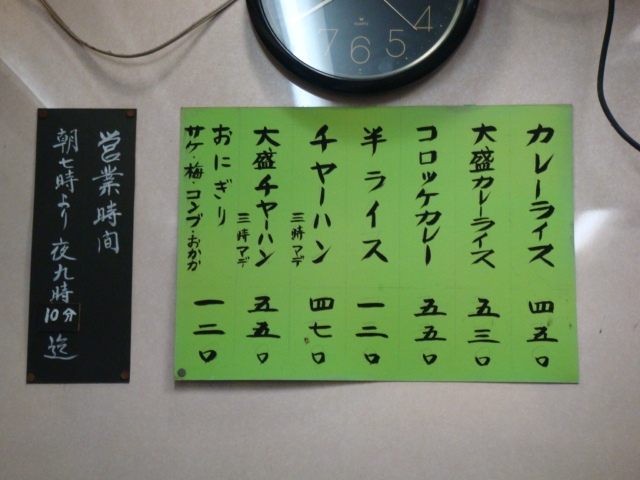 7 6 5 4
カレーライス 四五〇
大盛カレーライス 五三〇
コロッケカレー 五五〇
半ライス 一二〇
チャーハン 三時マデ 四七〇
大盛チャーハン 三時マデ 五五〇
おにぎり
サケ・梅・コンブ・おかか 一二〇
営業時間
朝七時より夜九時10分迄